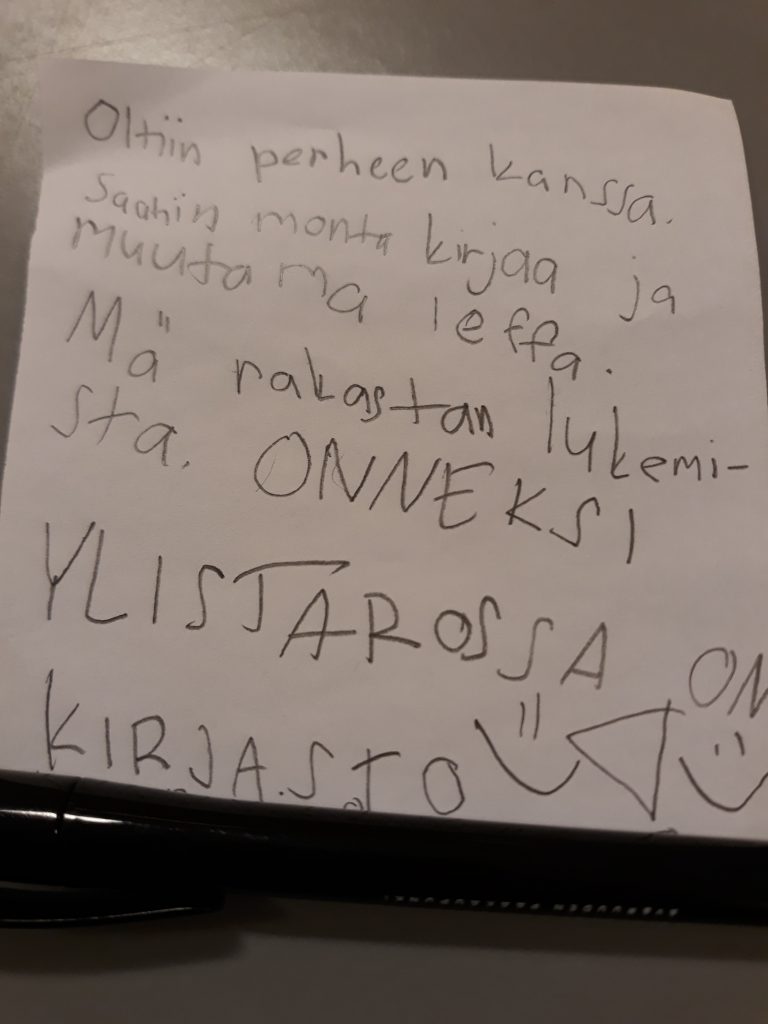 Oltiin perheen kanssa.
Saahin monta kirjaa ja
muutama leffa.
Mä rakastan lukemi-
sta. ONNEKSI
YLISTAROSSA ON
KIRJASTO